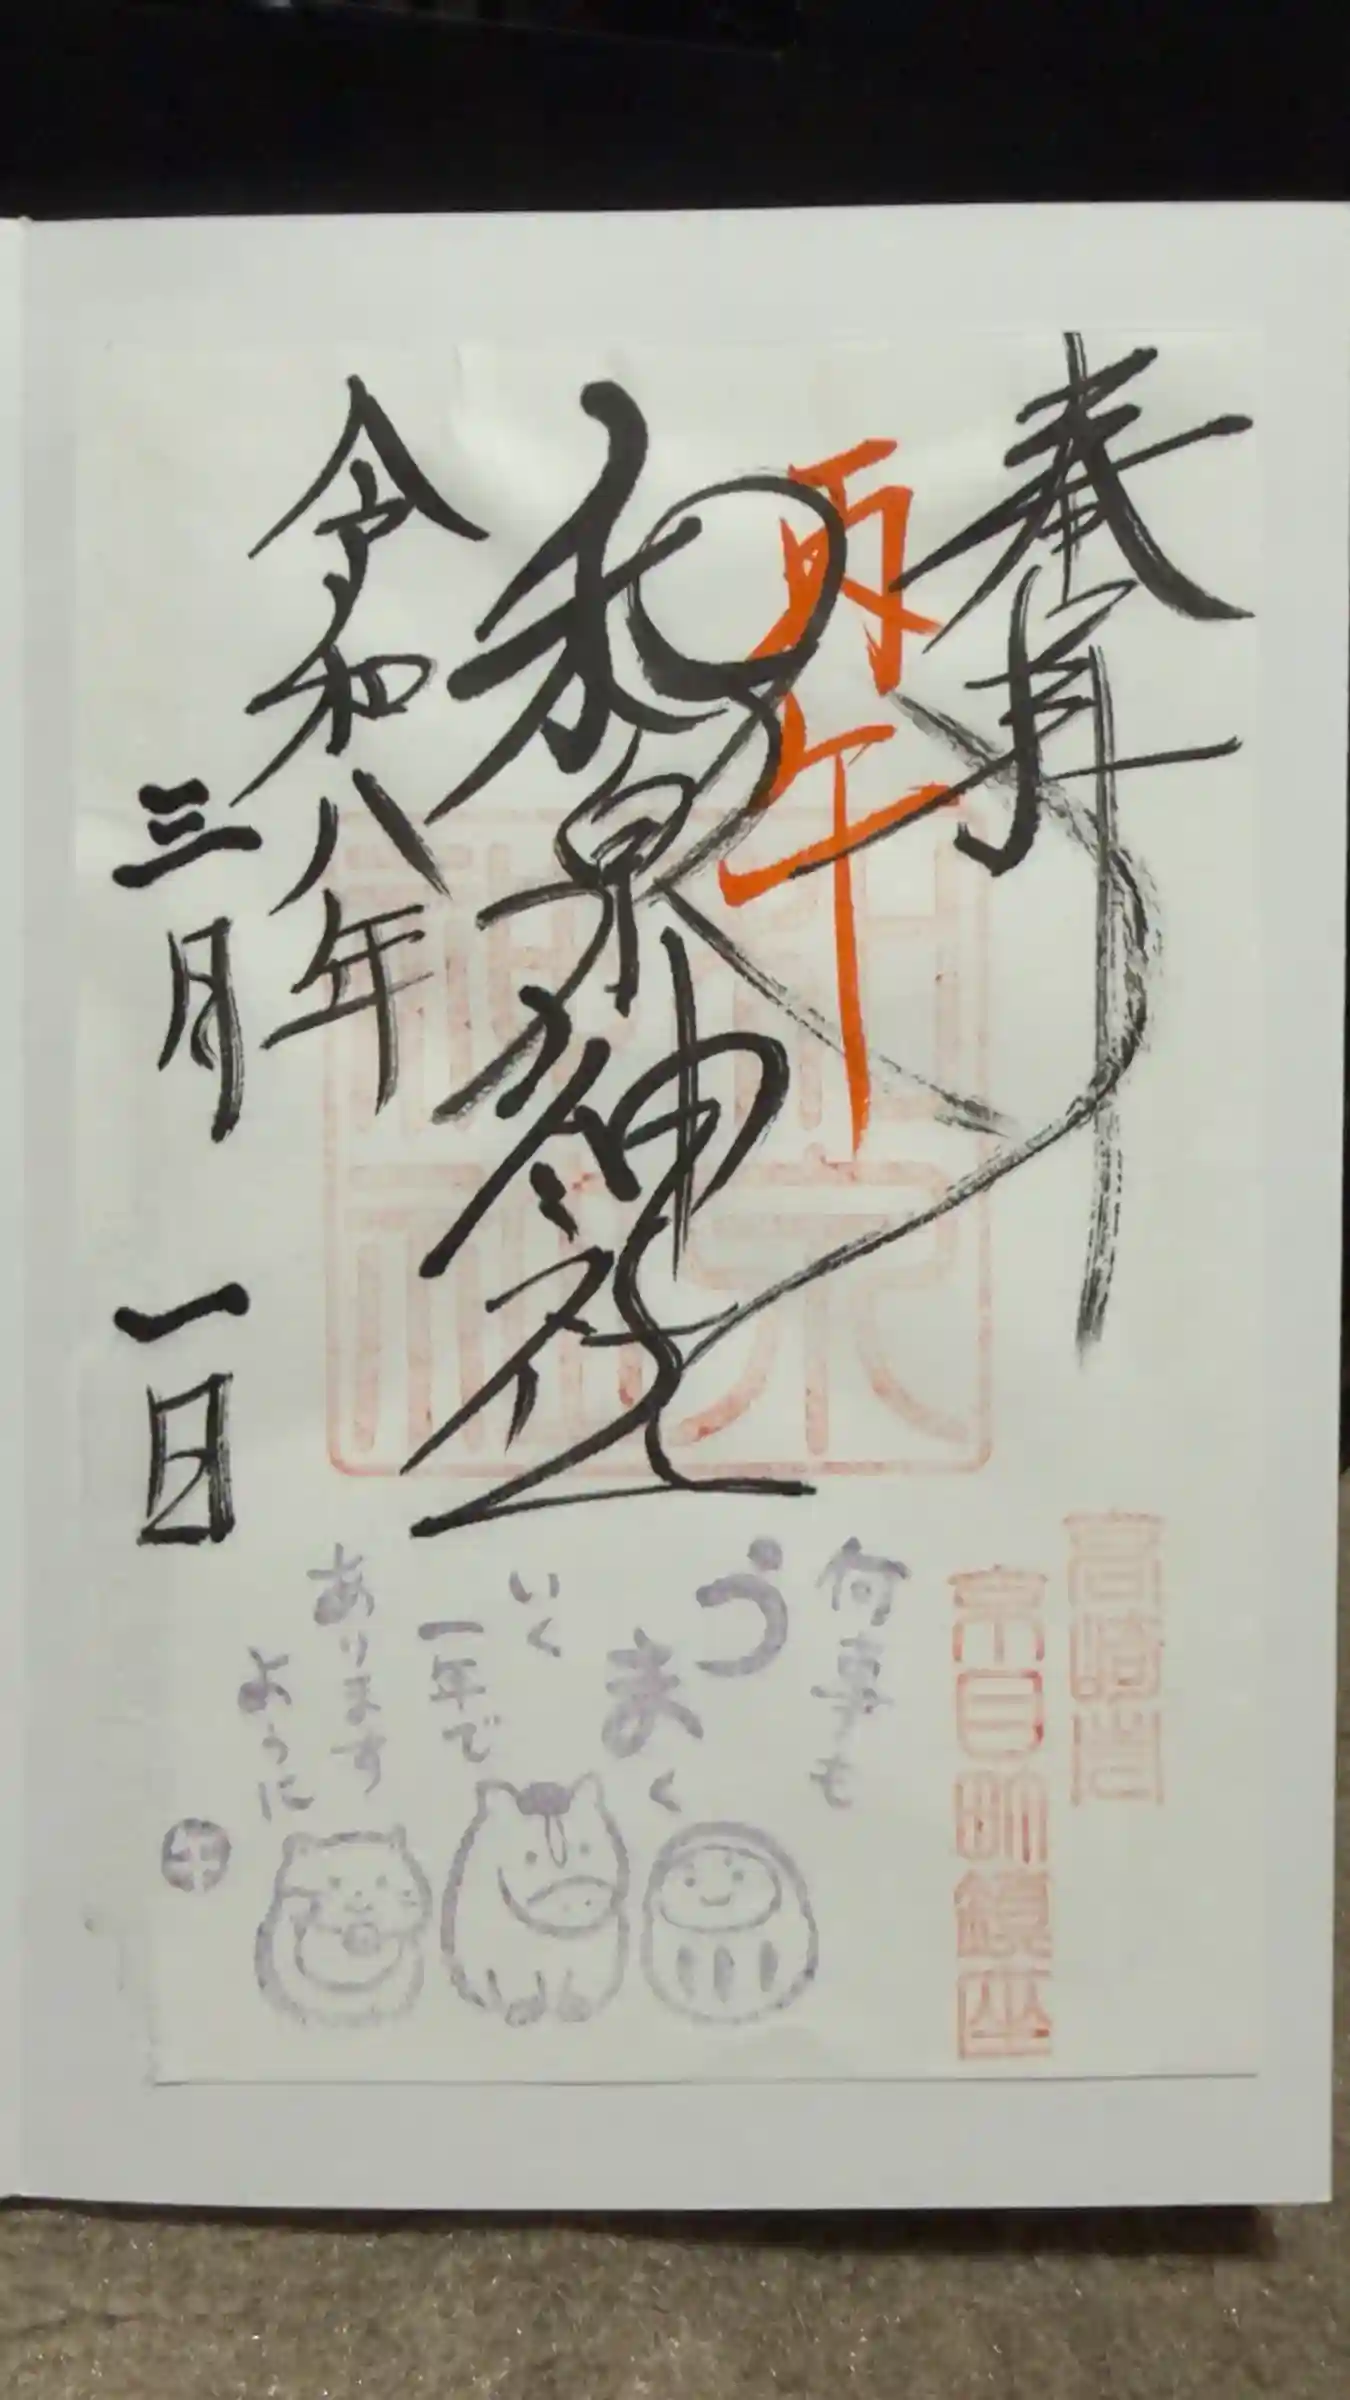 奉拝
丙午
和泉神社
令和八年
三月 一日
和泉
神社
高崎市
京目町鎮座
何事も
うまく
いく
一年で
あります
ように
午